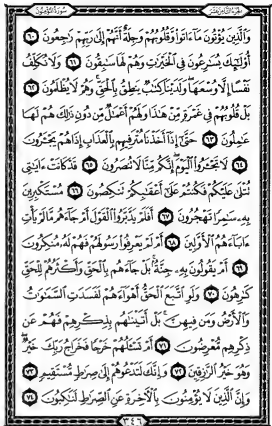 سورة المؤمنون الجزء الثامن عشر
وَٱلَّذِينَ يُؤْتُونَ مَآ ءَاتَوا۟ وَّقُلُوبُهُمْ وَجِلَةٌ أَنَّهُمْ إِلَىٰ رَبِّهِمْ رَٰجِعُونَ ٦٠
أُو۟لَٰٓئِكَ يُسَٰرِعُونَ فِى ٱلْخَيْرَٰتِ وَهُمْ لَهَا سَٰبِقُونَ ٦١ وَلَا نُكَلِّفُ
نَفْسًا إِلَّا وُسْعَهَا وَلَدَيْنَا كِتَٰبٌ يَنطِقُ بِٱلْحَقِّ وَهُمْ لَا يُظْلَمُونَ ٦٢
بَلْ قُلُوبُهُمْ فِى غَمْرَةٍ مِّنْ هَٰذَا وَلَهُمْ أَعْمَٰلٌ مِّن دُونِ ذَٰلِكَ هُمْ لَهَا
عَٰمِلُونَ ٦٣ حَتَّىٰٓ إِذَآ أَخَذْنَا مُتْرَفِيهِم بِٱلْعَذَابِ إِذَا هُمْ يَجْـَٔرُونَ
٦٤ لَا تَجْـَٔرُوا۟ ٱلْيَوْمَ إِنَّكُم مِّنَّا لَا تُنصَرُونَ ٦٥ قَدْ كَانَتْ ءَايَٰتِى
تُتْلَىٰ عَلَيْكُمْ فَكُنتُمْ عَلَىٰٓ أَعْقَٰبِكُمْ تَنكِصُونَ ٦٦ مُسْتَكْبِرِينَ
بِهِۦ سَٰمِرًا تَهْجُرُونَ ٦٧ أَفَلَمْ يَدَّبَّرُوا۟ ٱلْقَوْلَ أَمْ جَآءَهُم مَّا لَمْ يَأْتِ
ءَابَآءَهُمُ ٱلْأَوَّلِينَ ٦٨ أَمْ لَمْ يَعْرِفُوا۟ رَسُولَهُمْ فَهُمْ لَهُۥ مُنكِرُونَ
٦٩ أَمْ يَقُولُونَ بِهِۦ جِنَّةٌۢ بَلْ جَآءَهُم بِٱلْحَقِّ وَأَكْثَرُهُمْ لِلْحَقِّ
كَٰرِهُونَ ٧٠ وَلَوِ ٱتَّبَعَ ٱلْحَقُّ أَهْوَآءَهُمْ لَفَسَدَتِ ٱلسَّمَٰوَٰتُ
وَٱلْأَرْضُ وَمَن فِيهِنَّ بَلْ أَتَيْنَٰهُم بِذِكْرِهِمْ فَهُمْ عَن
ذِكْرِهِم مُّعْرِضُونَ ٧١ أَمْ تَسْـَٔلُهُمْ خَرْجًا فَخَرَاجُ رَبِّكَ خَيْرٌ
وَهُوَ خَيْرُ ٱلرَّٰزِقِينَ ٧٢ وَإِنَّكَ لَتَدْعُوهُمْ إِلَىٰ صِرَٰطٍ مُّسْتَقِيمٍ ٧٣
وَإِنَّ ٱلَّذِينَ لَا يُؤْمِنُونَ بِٱلْءَاخِرَةِ عَنِ ٱلصِّرَٰطِ لَنَٰكِبُونَ ٧٤
٣٤٦